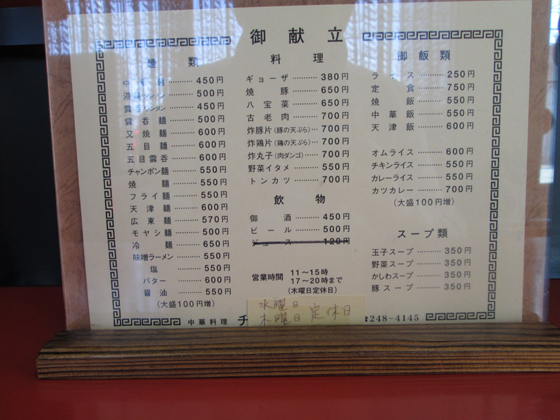 御献立
麺類
450円
湯 麺 500円
ワンタン 450円
雲呑麺 500円
叉焼麺 600円
五目麺 600円
五目雲呑 600円
チャンポン麺 550円
焼麺 550円
フライ麺 550円
天津麺 600円
広東麺 570円
モヤシ麺 500円
冷麺 650円
味噌ラーメン 550円
塩 550円
バター 600円
醤油 550円
(大盛100円増)
料理
ギョーザ 380円
焼豚 650円
八宝菜 650円
古老肉 700円
炸豚片(豚の天ぷら) 700円
炸鶏片(鶏の天ぷら) 700円
炸丸子(肉ダンゴ) 700円
野菜イタメ 550円
トンカツ 700円
飲物
御酒 450円
ビール 500円
ジュース 120円
営業時間 11～15時
17～20時まで
(木曜日定休日)
御飯類
ライス 250円
定食 750円
焼飯 550円
中華飯 550円
天津飯 600円
オムライス 600円
チキンライス 550円
カレーライス 550円
カツカレー 700円
(大盛100円増)
スープ類
玉子スープ 350円
野菜スープ 350円
かしわスープ 350円
豚スープ 350円
水曜日
木曜日 定休日
中華料理 チ
248-4145